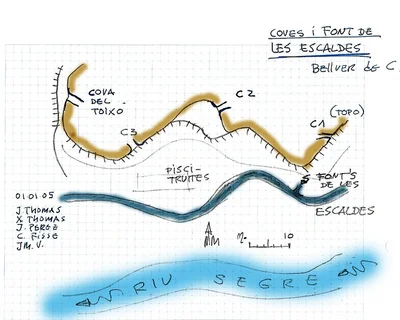 COVES i FONT DE
LES ESCALDES
Bellver de C.
COVA
DEL
TOIXO
C2
(TOPO)
C1
C3
PISCI-
TRUITES
FONT'S
DE LES
ESCALDES
01.01.05
J. THOMAS
X. THOMAS
J. PEREZ
C. FISSE
JM. V.
N
m.
10
RIU SEGRE